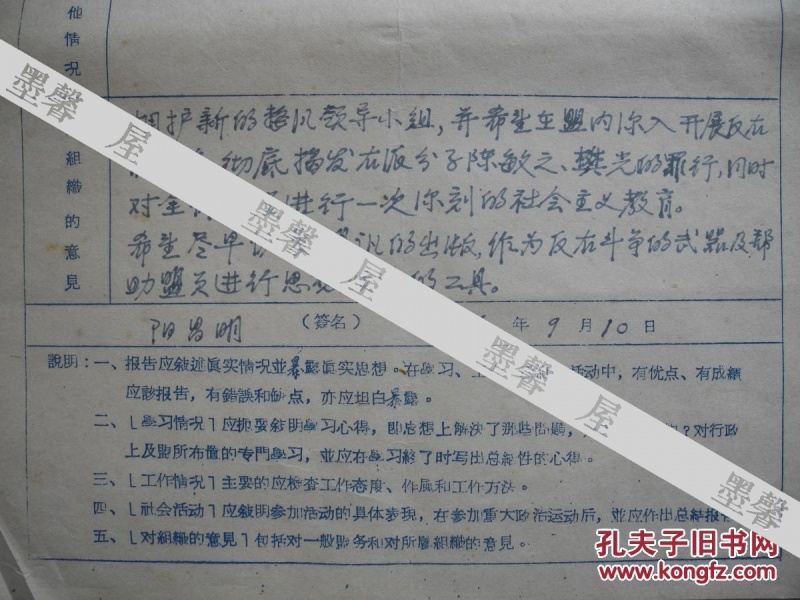 他情况
组织的意见
拥护新的整风领导小组，并希望在盟内深入开展反右
彻底揭发右派分子陈敏之、樊光的罪行，同时
对全 进行一次深刻的社会主义教育。
希望尽早 讯的出版，作为反右斗争的武器及帮
助盟员进行思 的工具。
阳昌明 （签名） 年9月10日
說明：一、报告应敍述眞实情况並暴露眞实思想。在学习、工 活动中，有优点、有成績
应該报告，有錯誤和缺点，亦应坦白暴露。
二、［学习情况］应扼要敍明学习心得，即思想上解决了那些問題， ？对行政
上及盟所布置的专門学习，並应在学习終了时写出总結性的心得。
三、［工作情况］主要的应检查工作态度、作風和工作方法。
四、［社会活动］应敍明参加活动的具体表現，在参加重大政治运动后，並应作出总結报告
五、［对組織的意見］包括对一般盟务和对所屬組織的意見。
墨馨屋
墨馨屋
墨馨屋
孔夫子旧书网
www.kongfz.com